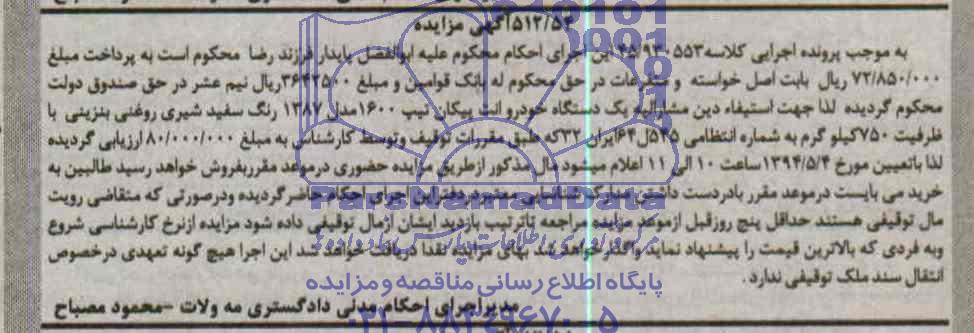 ۵۱۲/۵۲آگهی مزایده
به موجب پرونده اجرایی کلاسه ۹۳۰۵۵۳/ این اجرای احکام محکوم علیه ابوالفضل پایدار فرزند رضا محکوم است به پرداخت مبلغ
۷۲/۸۵۰/۰۰۰ ریال بابت اصل خواسته و متفرعات در حق محکوم له بانک قوامین و مبلغ ۳۶۴۲۵۰۰ریال نیم عشر در حق صندوق دولت
محکوم گردیده لذا جهت استیفاء دین مشارالیه یک دستگاه خودرو انت پیکان تیپ ۱۶۰۰مدل ۱۳۸۷ رنگ سفید شیری روغنی بنزینی با
ظرفیت ۷۵۰کیلو گرم به شماره انتظامی ۵۴۵ل۶۴ایران۳۲که طبق مقررات توقیف وتوسط کارشناس به مبلغ ۸۰/۰۰۰/۰۰۰ ارزیابی گردیده
لذا باتعیین مورخ ۱۳۹۴/۵/۴ساعت ۱۰ الی ۱۱ اعلام میشود مال مذکور ازطریق مزایده حضوری درموعد مقرربفروش خواهد رسید طالبین به
خرید می بایست درموعد مقرر بادردست داشتن مدارک شناسایی معتبردر دفتراین اجرای احکام حاضر گردیده ودرصورتی که متقاضی رویت
مال توقیفی هستند حداقل پنج روزقبل ازموعد مزایده مراجعه تاترتیب بازدید ایشان ازمال توقیفی داده شود مزایده ازنرخ کارشناسی شروع
وبه فردی که بالاترین قیمت را پیشنهاد نماید واگذارخواهد شد بهای مزایده نقدا دریافت خواهد شد این اجرا هیچ گونه تعهدی درخصوص
انتقال سند ملک توقیفی ندارد.
پایگاه اطلاع رسانی مناقصه ومزایده
مدیراجرای احکام مدنی دادگستری مه ولات –محمود مصباح
۰۲۱-۸۸۳۴۹۶۷۰-۵